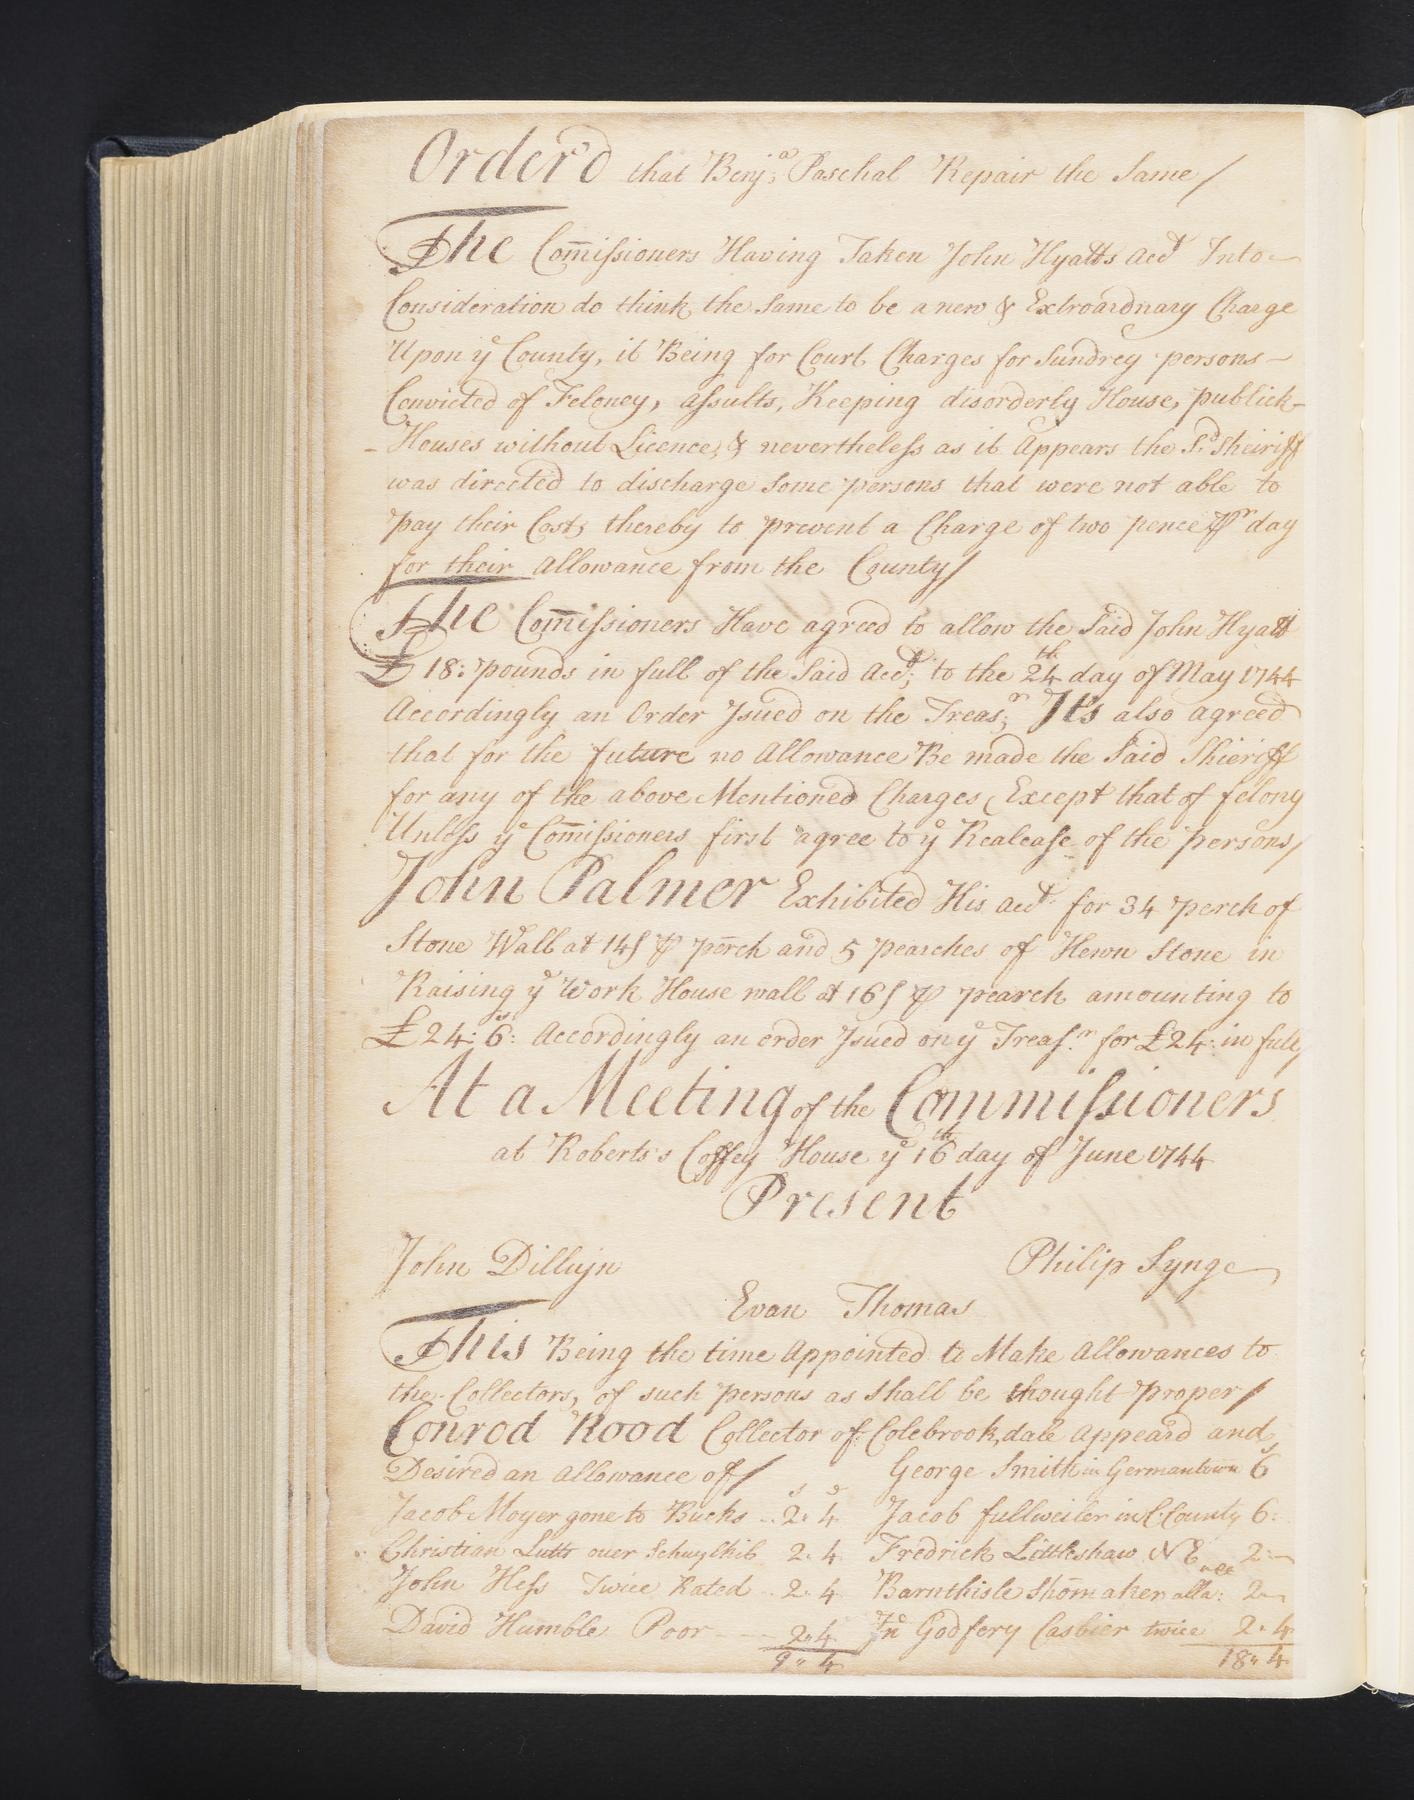 Order'd that Benj:ª Paschal Repair the Same/
The Com̄issioners Having Taken John Hyatts Acct Into
Consideration do think the Same to be a new & Extroardnary Charge
Upon ye County, it Being for Court Charges for Sundrey persons
Convicted of Feloney, assults, Keeping disorderly House, publick
Houses without Licence, & nevertheless as it Appears the Sd Sheiriff
was directed to discharge Some persons that were not able to
pay their Costs thereby to prevent a Charge of two pence ⅌r day
for their Allowance from the County/
The Com̄issioners Have agreed to allow the Said John Hyatt
£18: pounds in full of the Said Acct; to the 24th day of May 1744
Accordingly an Order Jsued on the Treas;r Jt's also agreed
that for the future no Allowance Be made the Said Shieriff
for any of the above Mentioned Charges, Except that of felony
Unless ye Com̄issioners first agree to ye Realease of the persons/
John Palmer Exhibited His Acct for 34 perch of
Stone Wall at 14s ⅌ perch and 5 pearches of Hewn Stone in
Raising ye Work House wall at 16s ⅌ pearch amounting to
£24:6s: Accordingly an order Jsued on ye Treas:r for £24: in full/
At a Meeting of the Commissioners
at Roberts's Coffey House ye 16th day of June 1744
Present
John Dillwyn Philip Synge
Evan Thomas
This Being the time Appointed to Make Allowances to
the Collectors, of such persons as Shall be thought proper/
Conrod Rood Collector of Colebrookdale Appeard and
Desired an Allowance of/ George Smith in Germantown 6s
s d
Jacob Moyer gone to Bucks 2" 4 Jacob fullweiler in C:County 6:
Christian Lutts over Schuylkil 2" 4 Fredrick Littleshaw N E 2"
John Hess Twice Rated 2" 4 Barnthisle Shōmaker 2"
David Humble Poor 2" 4 Godfery Casbier twice 2" 4
9" 4 18" 4